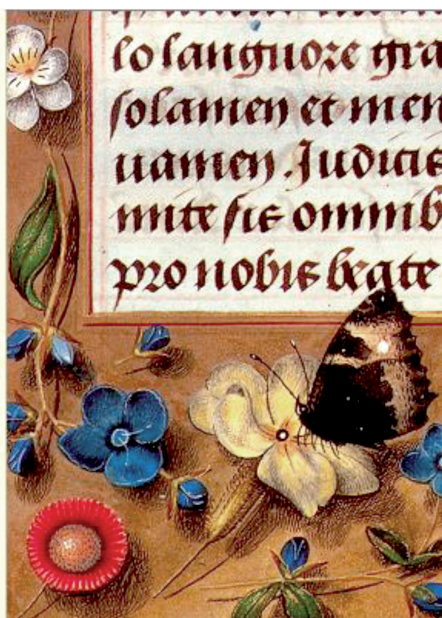 lo languore gra
solamen et men
uamen. Judicis
mite sis omnib
pro nobis beate